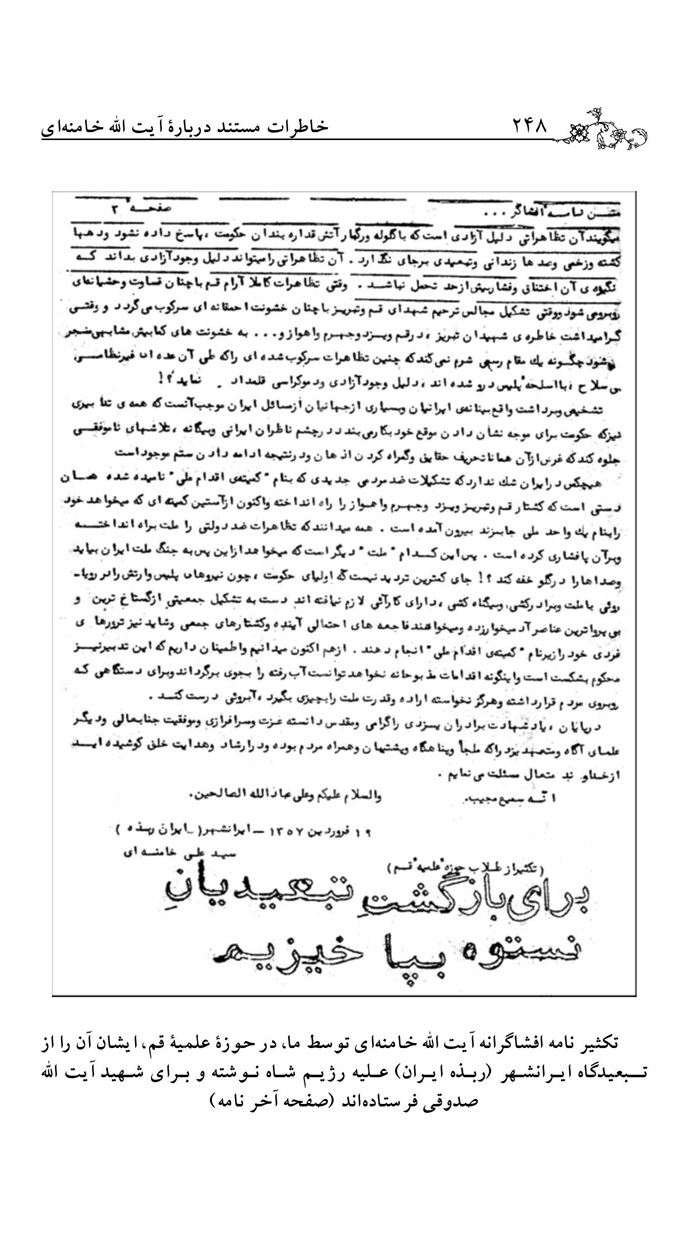 ۲۴۸ خاطرات مستند دربارهٔ آیت الله خامنه‌ای
متن نامه افشاگر ... صفحه ۲
میگویند آن تظاهراتی دلیل آزادی است که با گلوله ورگبار آتش قداره بندان حکومت ، پاسخ داده نشود و دهها
کشته وزخمی وعدها زندانی وتبعیدی برجای نگذارد . آن تظاهراتی را میتواند دلیل وجود آزادی بداند که
انگیزه ی آن اختناقی وفشار بیش از حد تحمل نباشد . وقتی تظاهرات کاملا آرام قم با چنان قساوت وحشیانه‌ای
روبرو می شود ووقتی تشکیل مجالس ترحیم شهدای قم وتبریز با چنان خشونت احمقانه ای سرکوب می گردد و وقتی
گرامیداشت خاطره‌ی شهیدان تبریز ، در قم ویزد وجهرم واهواز و... به خشونت های کمابیش مشابهی منجر
میشود چگونه یك مقام رسمی شرم نمی کند که چنین تظاهرات سرکوب شده ای را که طی آن عده ای غیرنظامی
بی سلاح ، با اسلحه پلیس درو شده اند ، دلیل وجود آزادی ودموکراسی قلمداد نماید ؟!
تشخیص وبرداشت واقع بینانه‌ی ایرانیان وبسیاری از جهانیان از مسائل ایران موجب آنست که همه ی تدابیری
نیز که حکومت برای موجه نشان دادن موقع خود بکار می بندد در چشم ناظران ایرانی وبیگانه ، تلاشهای ناموفقی
جلوه کند که غرض از آن همانا تحریف حقایق وگمراه کردن اذهان ودر نتیجه ادامه دادن ستم موجود است
هیچکس در ایران شك ندارد که تشکیلات ضد مردمی جدیدی که بنام "کمیته‌ی اقدام ملی" نامیده شده همان
دستی است که کشتار قم وتبریز ویزد وجهرم واهواز را راه انداخته واکنون از آستین کمیته ای که میخواهد خود
را بنام یك واحد ملی جا بزند بیرون آمده است . همه میدانند که تظاهرات ضد دولتی را ملت براه انداخته
وبرآن پافشاری کرده است . پس این کدام "ملت" دیگر است که میخواهد از این پس به جنگ ملت ایران بیاید
وصداها را در گلو خفه کند ؟! جای کمترین تردید نیست که اولیای حکومت ، چون نیروهای پلیس وارتش را در رویا-
روئی با ملت وبرادرکشی وبیگناه کشی ، دارای کارآئی لازم نیافته اند دست به تشکیل جمعیتی از گستاخ ترین و
بی پرواترین عناصر آدمیخوار زده ومیخواهند فاجعه های احتمالی آینده وکشتارهای جمعی وشاید نیز ترورهای
فردی خود را زیر نام "کمیته‌ی اقدام ملی" انجام دهند . از هم اکنون میدانیم واطمینان داریم که این تدبیر نیز
محکوم بشکست است و اینگونه اقدامات مذبوحانه نخواهد توانست آب رفته را بجوی برگرداند وبرای دستگاهی که
روبروی مردم قرار داشته وهرگز نخواسته اراده وقدرت ملت را بچیزی بگیرد ، آبروئی درست کند .
درپایان ، یاد شهادت برادران یزدی را گرامی ومقدس دانسته عزت وسرافرازی وموفقیت جنابعالی ودیگر
علمای آگاه ومتعهد یزد را که ملجأ وپناهگاه وپشتیبان وهمراه مردم بوده ودر ارشاد وهدایت خلق کوشیده اید
از خداوند متعال مسئلت می نمایم .
انه سمیع مجیب. والسلام علیکم وعلی عباد الله الصالحین.
۱۹ فروردین ۱۳۵۷ – ایرانشهر (ایران ربذه )
سید علی خامنه ای
(تکثیر از طلاب حوزه علمیه قم)
برای بازگشتِ تبعیدیانِ
نستوه بپا خیزیم
تکثیر نامه افشاگرانه آیت الله خامنه‌ای توسط ما، در حوزهٔ علمیهٔ قم، ایشان آن را از
تبعیدگاه ایرانشهر (ربذه ایران) علیه رژیم شاه نوشته و برای شهید آیت الله
صدوقی فرستاده‌اند (صفحه آخر نامه)